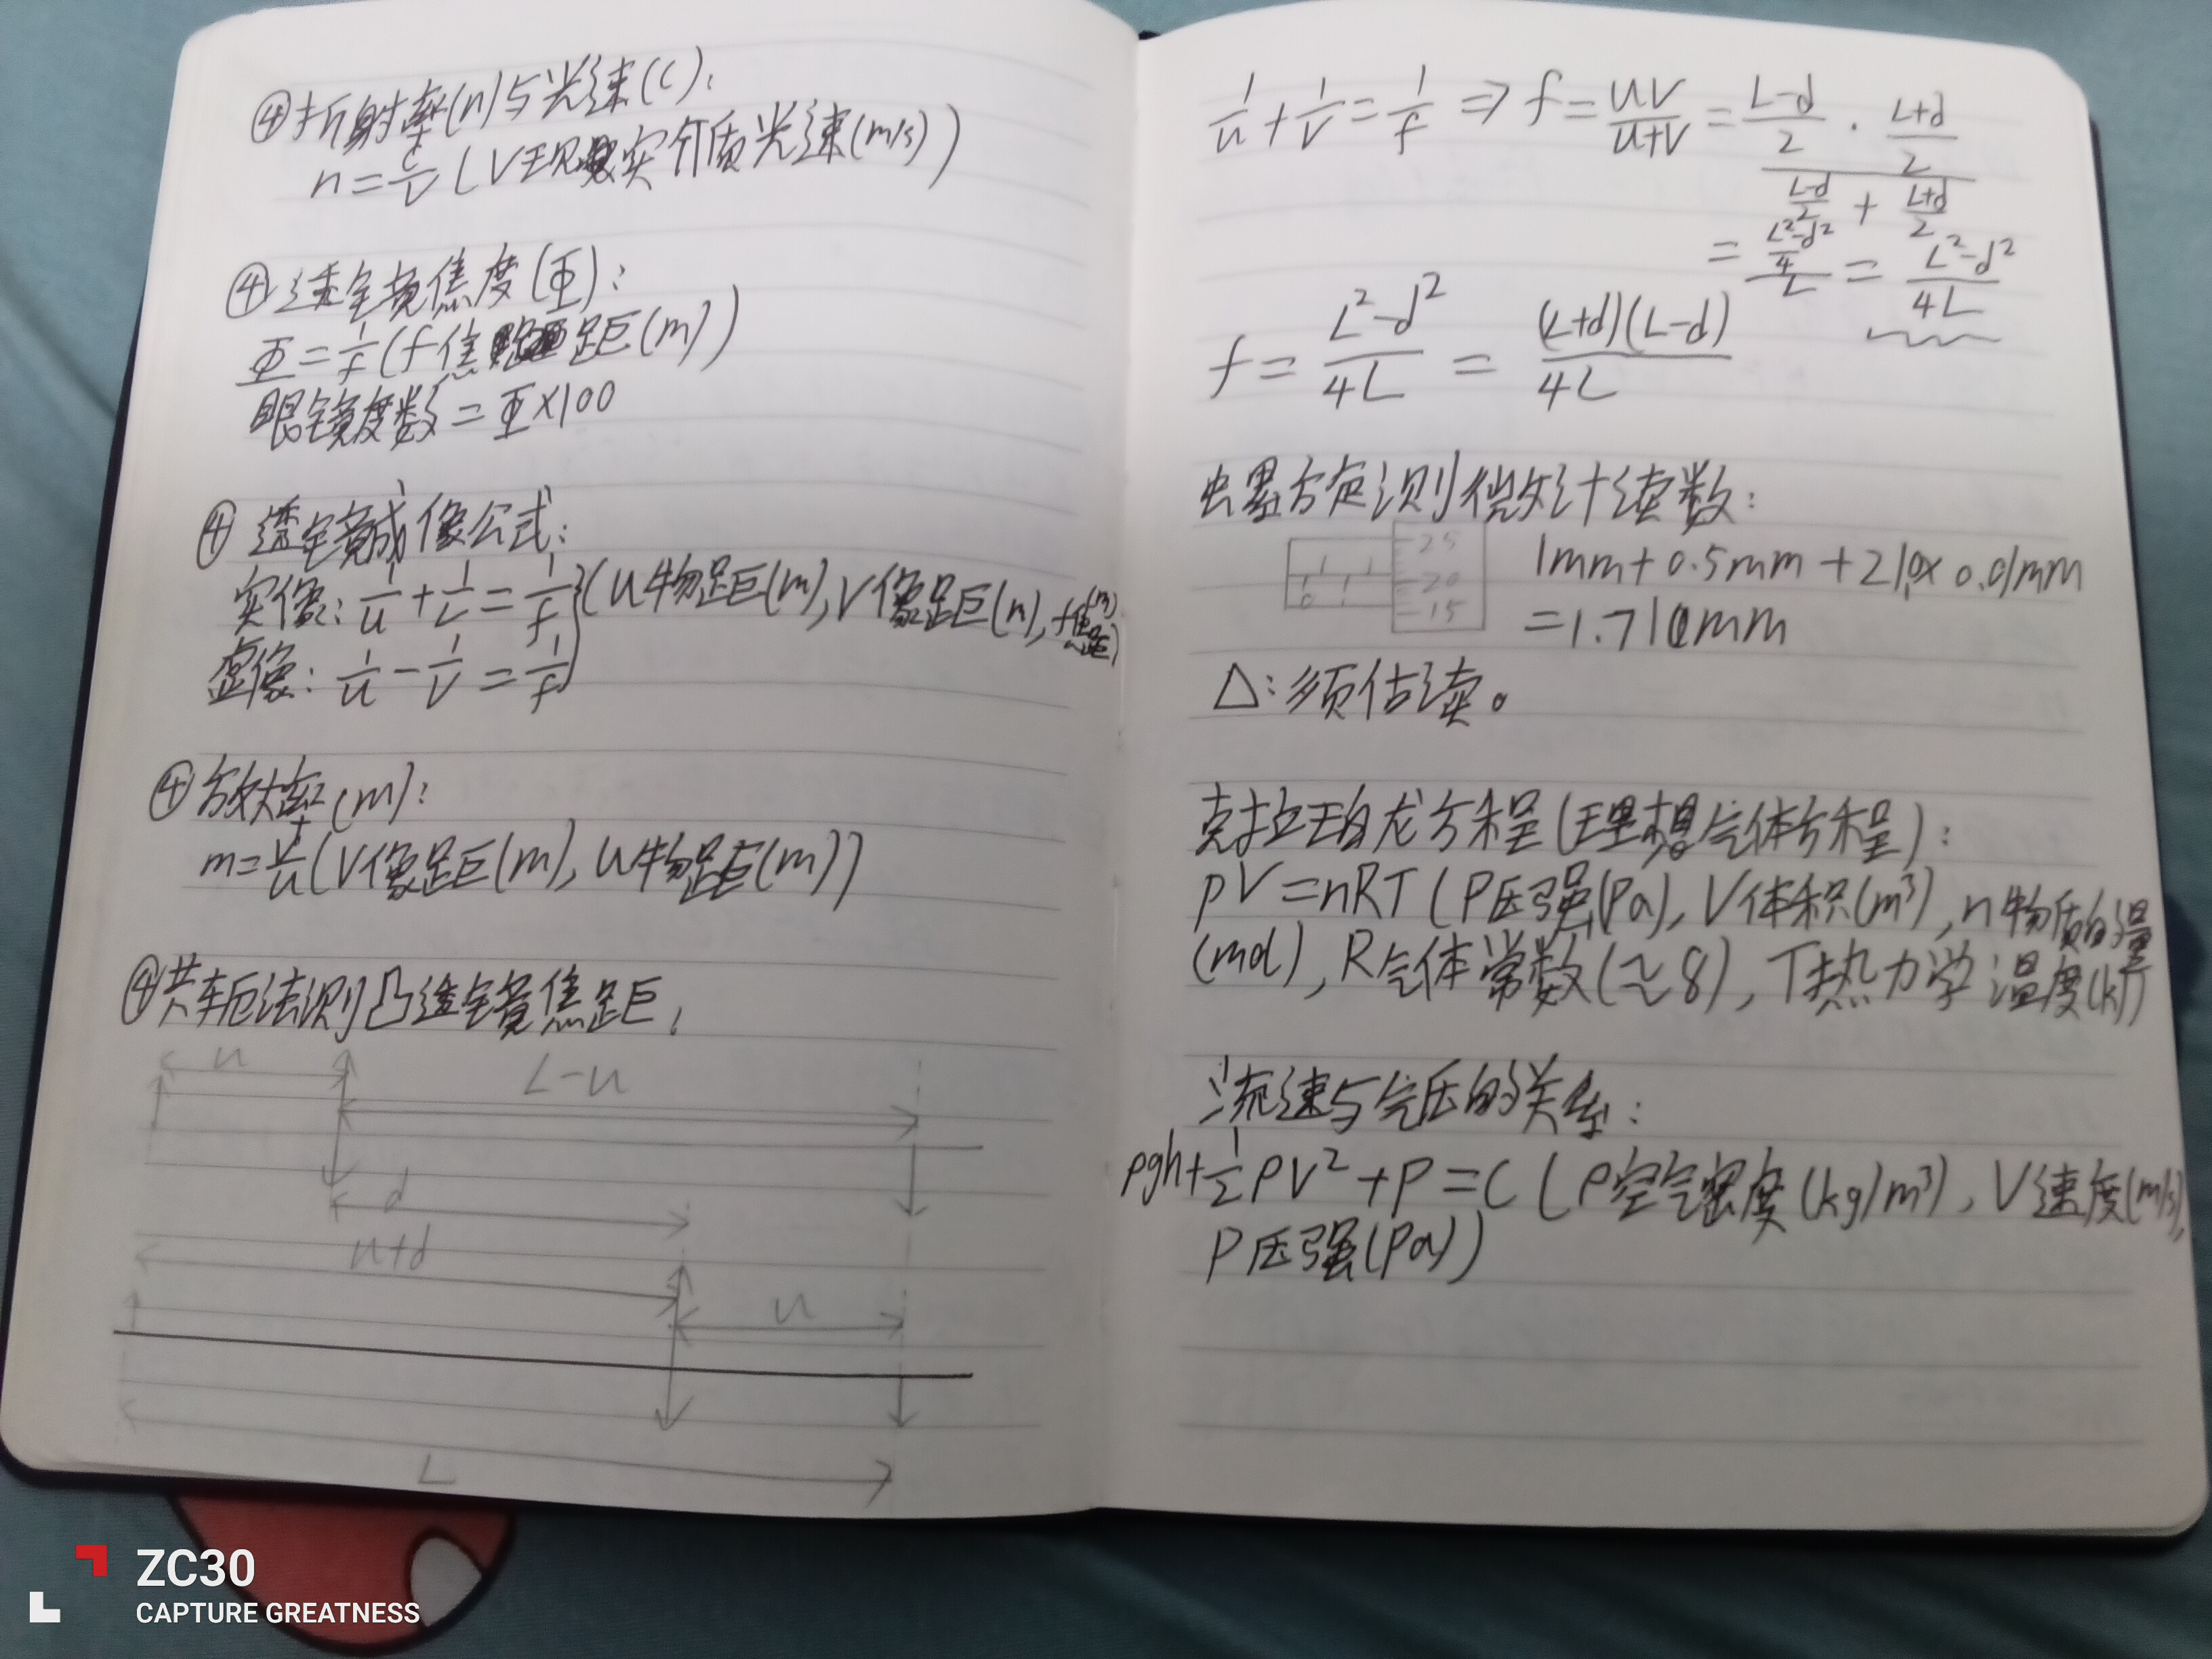 ④折射率(n)与光速(c):
n=c/v(V现实介质光速(m/s))
④透镜焦度(Φ):
Φ=1/f(f焦距(m))
眼镜度数=Φ×100
④透镜成像公式:
实像:1/u+1/v=1/f
虚像:1/u-1/v=1/f
}(u物距(m),V像距(m),f焦距(m))
④放大率(m):
m=v/u(V像距(m),u物距(m))
④共轭法测凸透镜焦距,
u
L-u
d
u+d
u
L
1/u+1/v=1/f⇒f=uv/(u+v)=(L-d)/2·(L+d)/2/((L-d)/2+(L+d)/2)
=((L²-d²)/4)/L=(L²-d²)/4L
f=(L²-d²)/4L=(L+d)(L-d)/4L
螺旋测微计读数:
25
20
15
0
1mm+0.5mm+21.0×0.01mm
=1.710mm
△:须估读。
克拉珀龙方程(理想气体方程):
pV=nRT(P压强(Pa),V体积(m³),n物质的量
(mol),R气体常数(≈8),T热力学温度(k))
流速与气压的关系:
ρgh+1/2ρV²+P=C(ρ空气密度(kg/m³),V速度(m/s),
P压强(Pa))
ZC30
CAPTURE GREATNESS